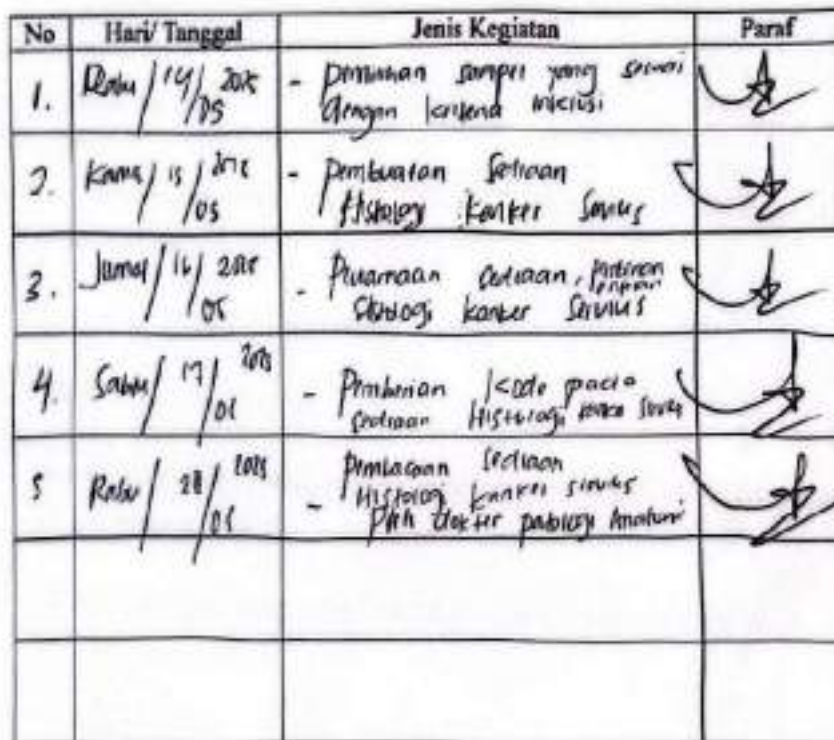 No Hari/ Tanggal Jenis Kegiatan Paraf
1. Rabu / 14 / 05 2025 - pemilihan sampel yang sesuai
dengan kriteria inklusi
2. Kamis / 15 / 05 - Pembuatan Sediaan
Histologi Kanker Serviks
3. Jumat / 16 / 05 - sediaan
kanker Serviks
4. Sabtu / 17 / 05 2025 - Pemberian kode pada
sediaan Histologi kanker Serviks
5 Rabu / 28 / 05 2025 Pembacaan Sediaan
- Histologi kanker serviks
oleh dokter patologi Anatomi